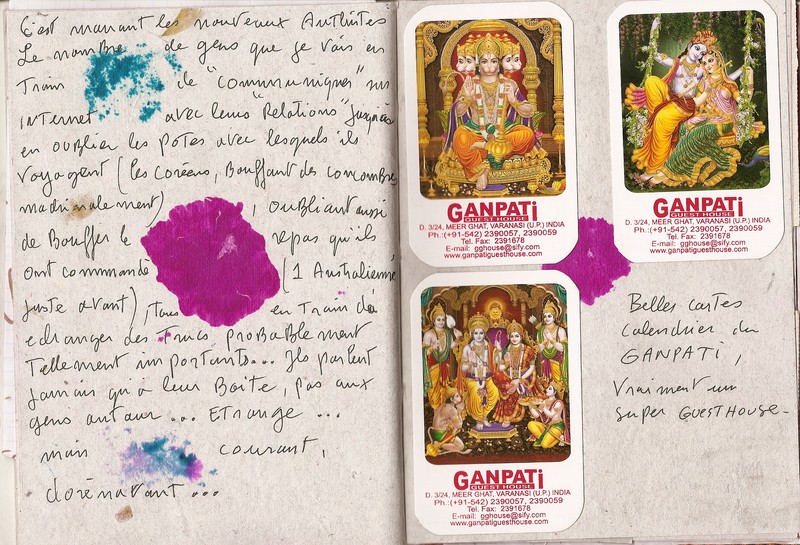 C'est marrant les nouveaux Autistes
Le nombre de gens que je vois en
Train de "communiquer" sur
internet avec leurs "Relations" jusqu'à
en oublier les potes avec lesquels ils
voyagent (les coréens, Bouffant des concombres
machinalement), oubliant aussi
de Bouffer le repas qu'ils
ont commandé (1 Australienne
juste avant), tous en Train de
echanger des Trucs probablement
Tellement importants... Ils parlent
jamais qu'à leur Boite, pas aux
gens autour... ETRANGE...
mais courant,
dorénavant...
GANPATi
GUEST HOUSE
D. 3/24, MEER GHAT, VARANASI (U.P.) INDIA
Ph.:(+91-542) 2390057, 2390059
Tel. Fax: 2391678
E-mail: gghouse@sify.com
www.ganpatiguesthouse.com
GANPATi
GUEST HOUSE
D. 3/24, MEER GHAT, VARANASI (U.P.) INDIA
Ph.:(+91-542) 2390057, 2390059
Tel. Fax: 2391678
E-mail: gghouse@sify.com
www.ganpatiguesthouse.com
GANPATi
GUEST HOUSE
D. 3/24, MEER GHAT, VARANASI (U.P.) INDIA
Ph.:(+91-542) 2390057, 2390059
Tel. Fax: 2391678
E-mail: gghouse@sify.com
www.ganpatiguesthouse.com
Belles cartes
calendrier du
GANPATI,
vraiment un
super GUESTHOUSE-